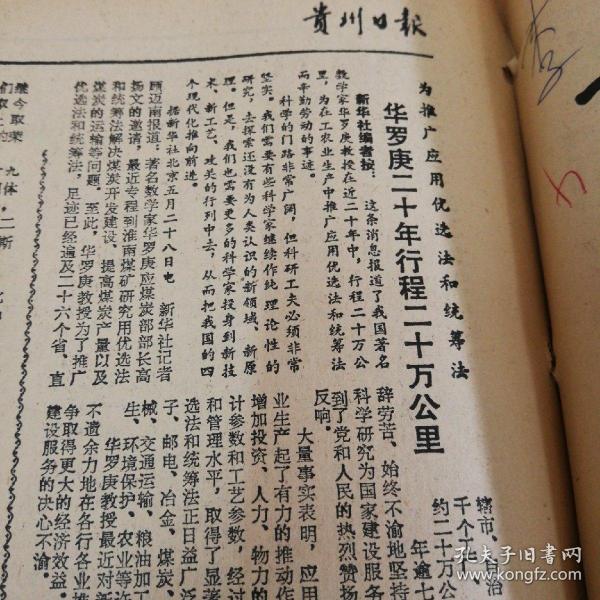 贵州日报
为推广应用优选法和统筹法
华罗庚二十年行程二十万公里
新华社编者按：这条消息报道了我国著名
数学家华罗庚教授在近二十年中，行程二十万公
里，为在工农业生产中推广应用优选法和统筹法
而辛勤劳动的事迹。
科学的门路非常广阔，但科研工夫必须非常
坚实。我们需要有些科学家继续作纯理论性的
研究，去探索还没有为人类认识的新领域、新原
理。但是，我们也需要更多的科学家投身到新技
术、新工艺，攻关的行列中去，从而把我国的四
个现代化推向前进。
据新华社北京五月二十八日电 新华社记者
顾迈南报道：著名数学家华罗庚应煤炭部部长高
扬文的邀请，最近专程到淮南煤矿研究用优选法
和统筹法解决煤炭开发建设、提高煤炭产量以及
煤炭的运输等问题。至此，华罗庚教授为了推广
优选法和统筹法，足迹已经遍及二十六个省、直
辖市、自治
千个工
约二十万公
年逾七
辞劳苦、始终不渝地坚持
科学研究为国家建设服务
到了党和人民的热烈赞扬
反响。
大量事实表明，应用
业生产起了有力的推动作
增加投资、人力、物力的
计参数和工艺参数，经过
和管理水平，取得了显著
选法和统筹法正日益广泛
子、邮电、冶金、煤炭、
械、交通运输、粮油加工
生、环境保护、农业等许
华罗庚教授最近对新
不遗余力地在各行各业推
争取得更大的经济效益。
建设服务的决心不渝。
孔夫子旧书网
www.kongfz.com